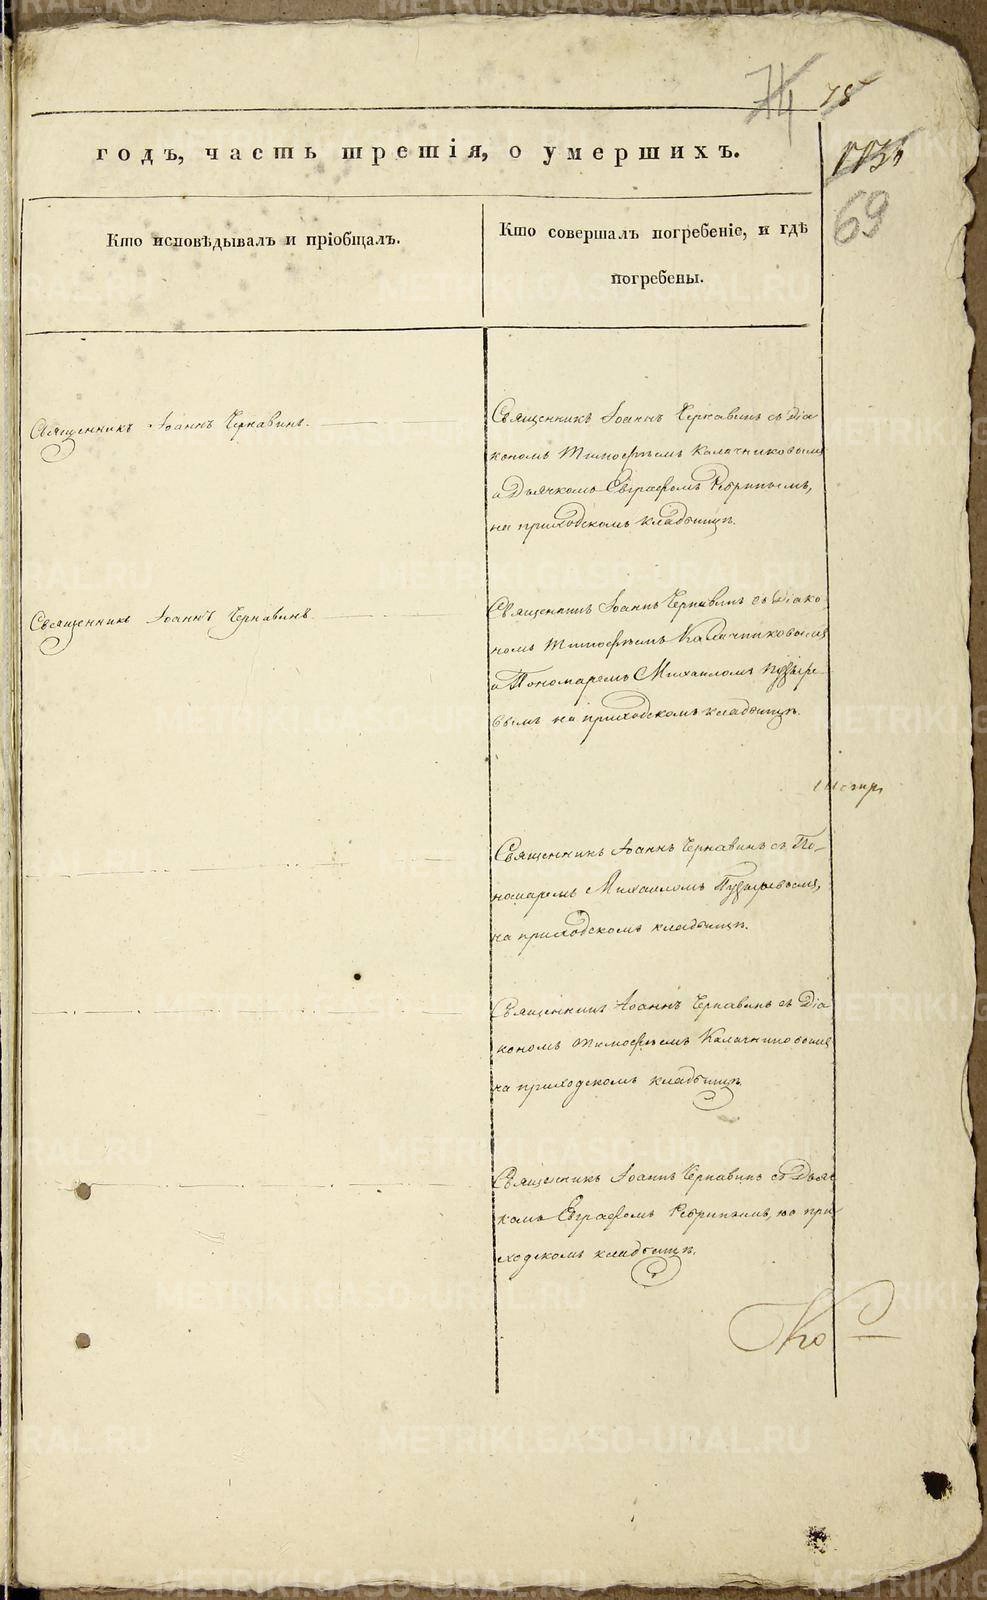 74 78
годъ, часть третія, о умершихъ.
69
Кто исповѣдывалъ и пріобщалъ.
Кто совершалъ погребеніе, и гдѣ
погребены.
Священникъ Іоаннъ Чернавинъ.
Священникъ Іоаннъ Чернавинъ съ Діа
кономъ Тимофѣемъ Калачниковымъ
и Дьячкомъ Евграфомъ
на приходскомъ кладбищѣ.
Священникъ Іоаннъ Чернавинъ.
Священникъ Іоаннъ Чернавинъ съ Діако
номъ Тимофѣемъ Калачниковымъ
и Пономаремъ Михаиломъ Пузыре
вымъ на приходскомъ кладбищѣ.
Священникъ Іоаннъ Чернавинъ съ По-
номаремъ Михаиломъ Пузыревымъ,
на приходскомъ кладбищѣ.
Священникъ Іоаннъ Чернавинъ съ Діа
кономъ Тимофѣемъ Калачниковымъ
на приходскомъ кладбищѣ.
Священникъ Іоаннъ Чернавинъ съ Дьяч
комъ Евграфомъ на при
ходскомъ кладбищѣ.
METRIKI.GASO-URAL.RU